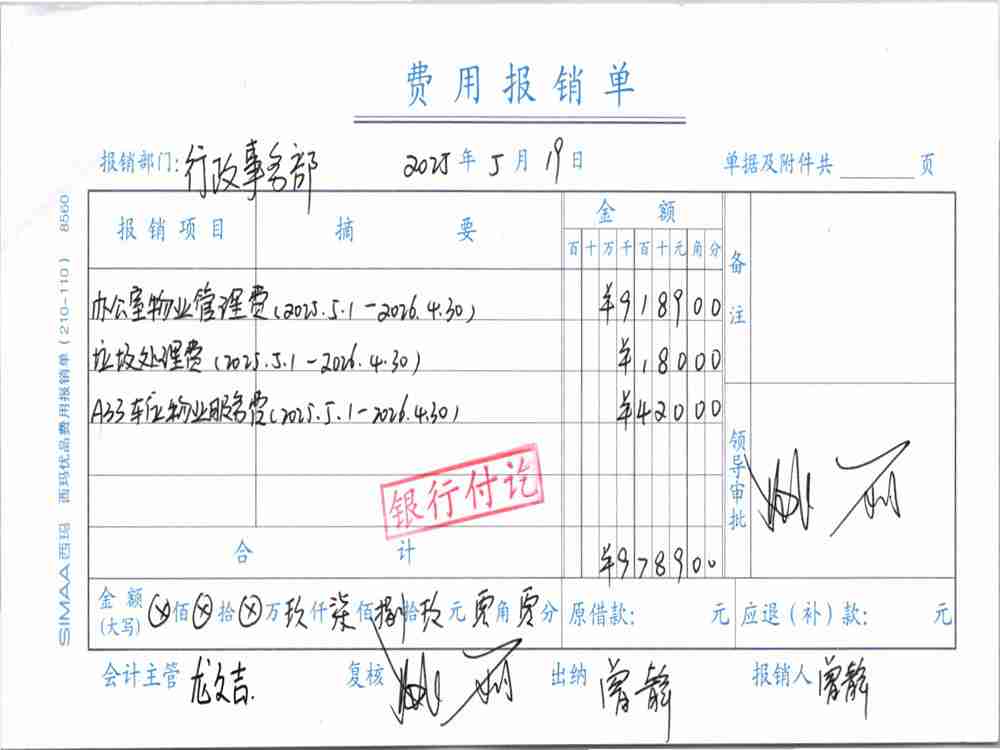 费用报销单
报销部门:行政事务部 2025年5月19日 单据及附件共 页
报销项目 摘要 金额 备注
百十万千百十元角分
办公室物业管理费(2025.5.1-2026.4.30) ¥918900
垃圾处理费(2025.5.1-2026.4.30) ¥18000
A33车位物业服务费(2025.5.1-2026.4.30) ¥42000
领导审批
银行付讫
合计 ¥978900
金额(大写) ⊗佰⊗拾⊗万玖仟柒佰捌拾玖元零角零分 原借款: 元 应退(补)款: 元
会计主管 尤文吉. 复核 出纳 曾静 报销人 曾静
SIMAA西玛 西玛优品费用报销单(210-110) 8560